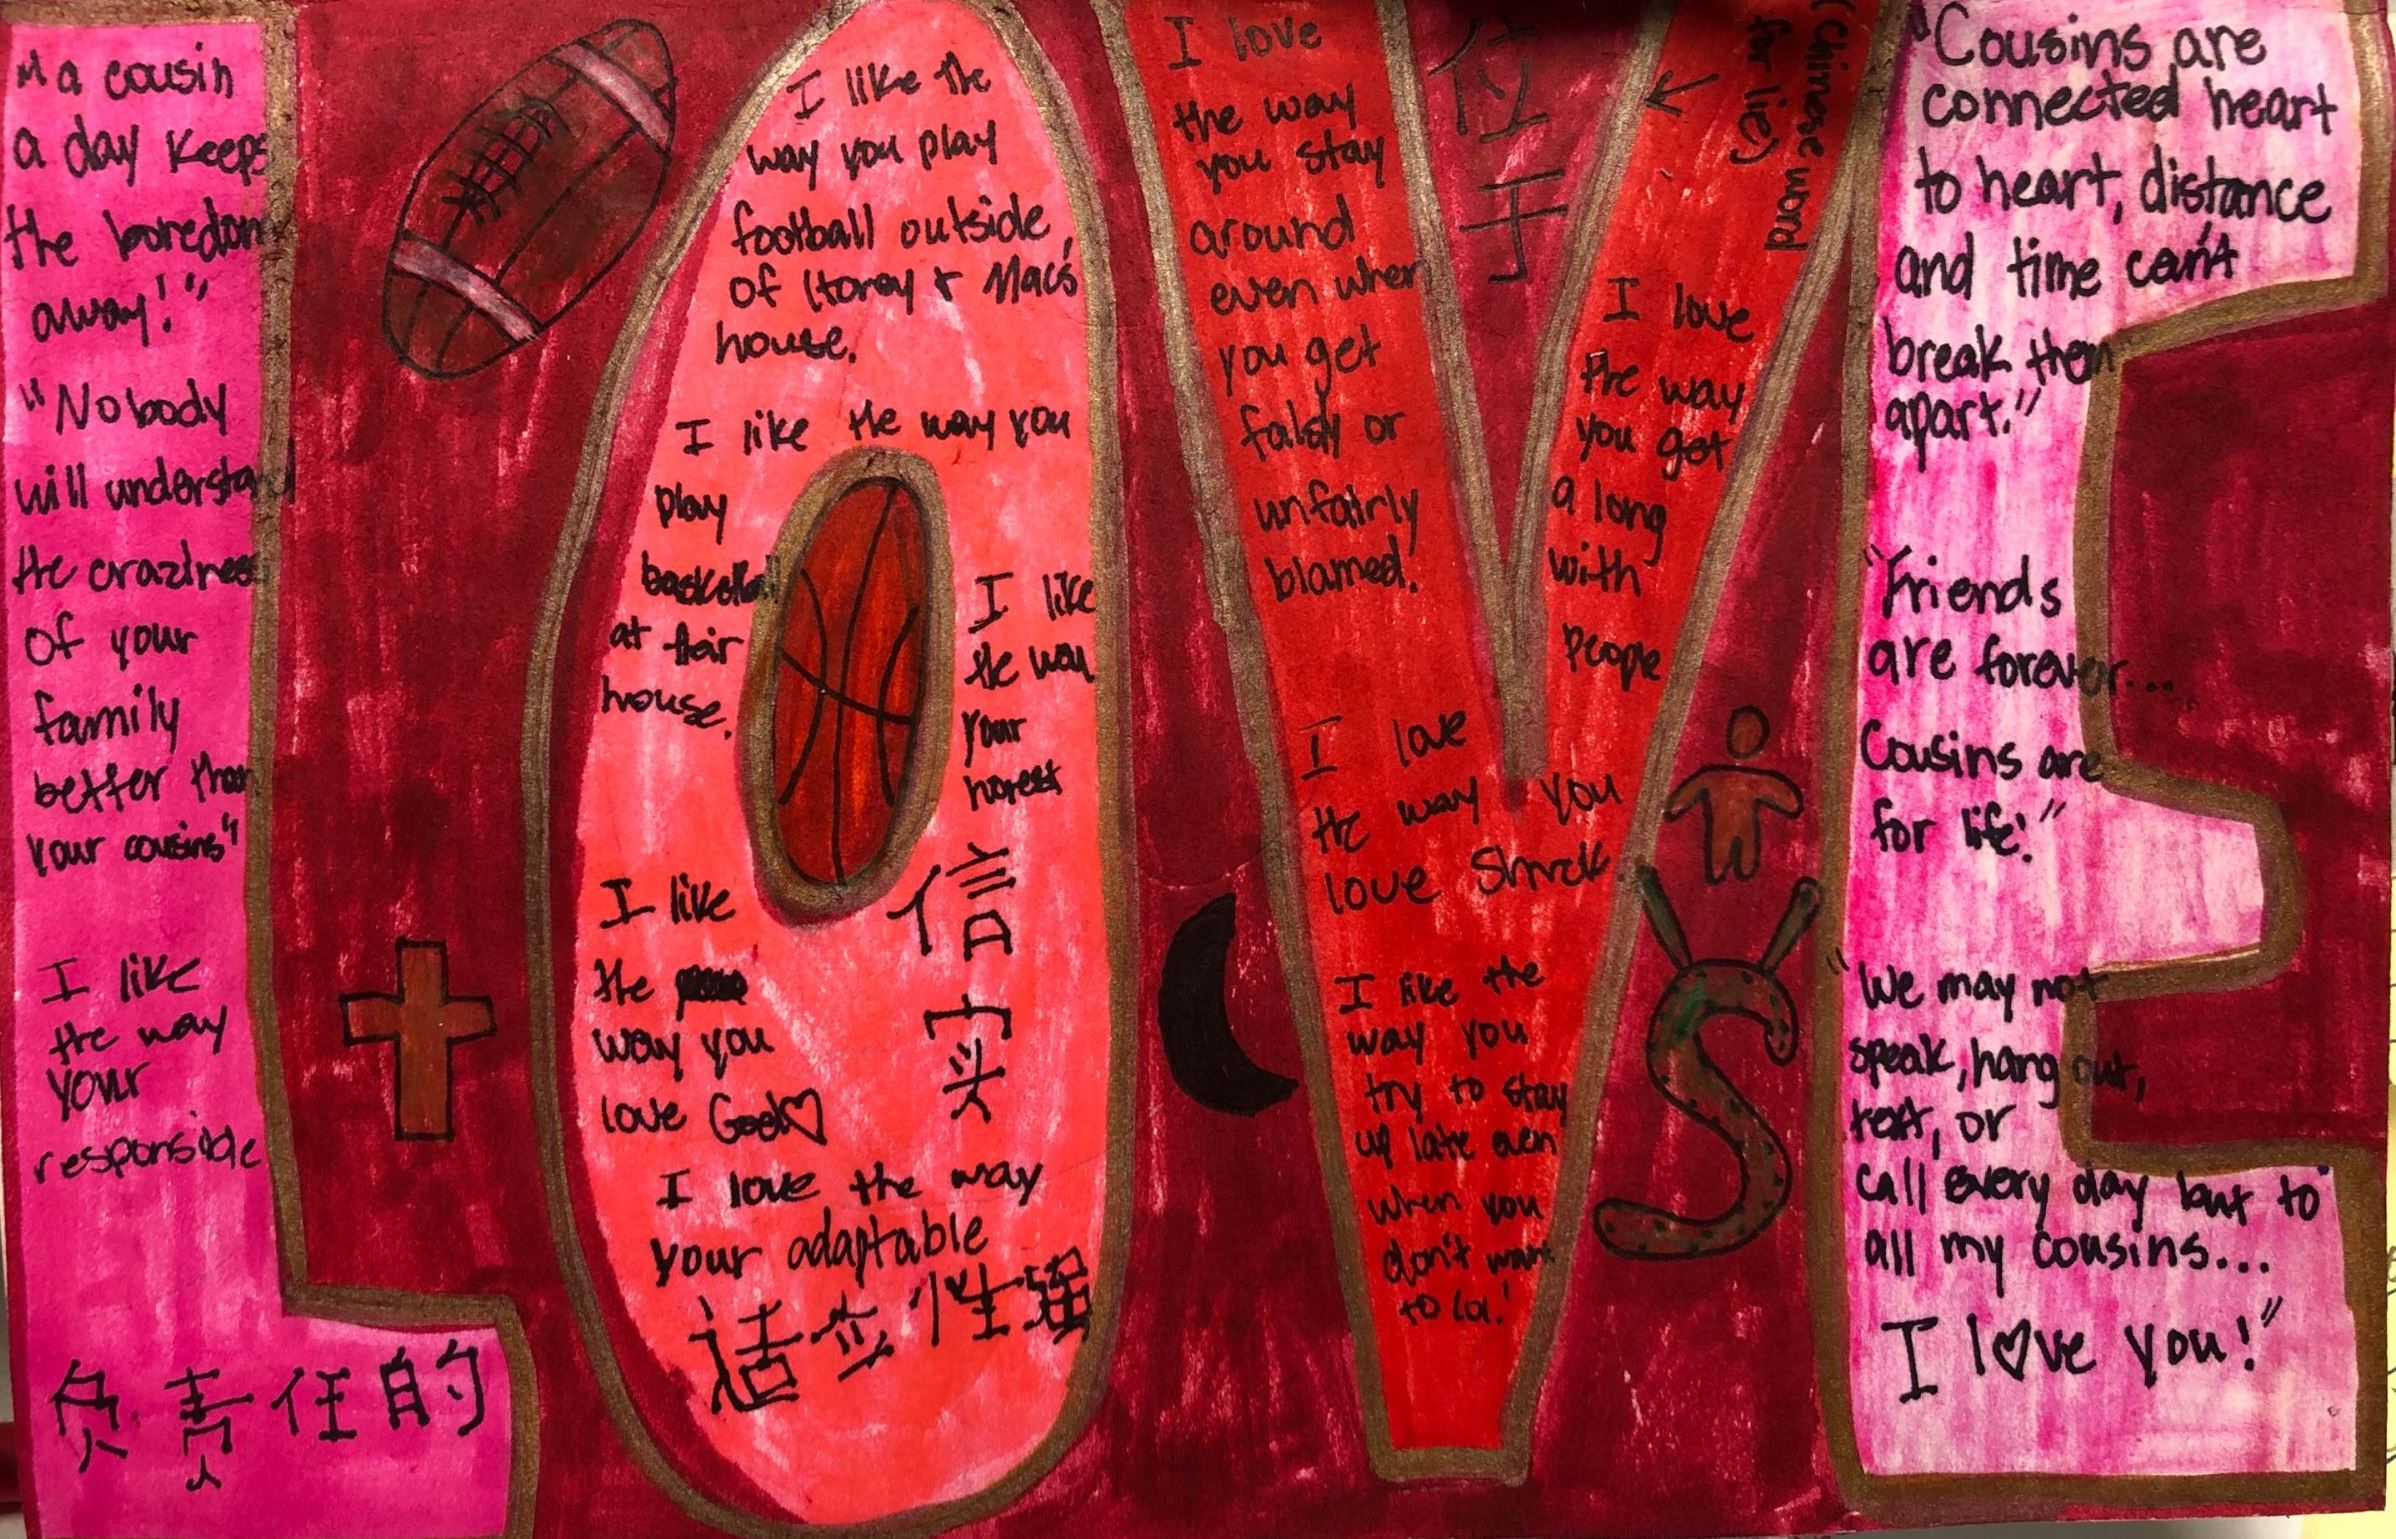 "a cousin
a day keeps
the boredom
away!"
"Nobody
will understand
the craziness
of your
family
better than
your cousins"
I like
the way
your
responsible
负责任的
I like the
way you play
football outside,
of & Mac's
house.
I like the way you
play
basketball
at thair
house.
I like
the way
your
honest
信实
I like
the
way you
love God
I love the way
your adaptable
适应性强
I love
the way
you stay
around
even when
you get
falsly or
unfairly
blamed!
位于
(chinese word
for lie)
I love
the way
you get
a long
with
people
I love
the way you
love Shrek.
I like the
way you
try to stay
up late even
when you
don't want
to lol!
"Cousins are
connected heart
to heart, distance
and time can't
break them
apart."
"Friends
are forever....
Cousins are
for life!"
"We may not
speak, hang out,
text, or
call every day but to
all my cousins...
I love you!"